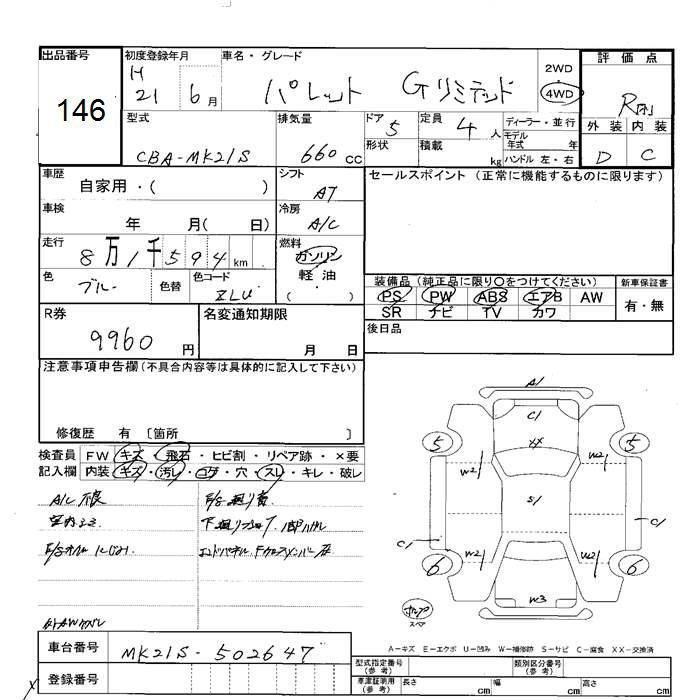 出品番号
146
初度登録年月
H
21 6月
車名・グレード
パレット Gリミテッド
2WD
4WD
評価点
R
外装 内装
D C
型式
CBA-MK21S
排気量
660 CC
ドア
5
形状
定員
4 人
積載
kg
ディーラー・並行
モデル
年式 年
ハンドル 左・右
車歴
自家用・( )
シフト
AT
セールスポイント(正常に機能するものに限ります)
車検
年 月( 日)
冷房
A/C
走行
8万1千594km
燃料
ガソリン
軽油
( )
色
ブルー
色替
色コード
ZLU
装備品(純正品に限り○をつけてください)
PS PW ABS エアB AW
SR ナビ TV カワ
新車保証書
有・無
R券
9960円
名変通知期限
月 日
後日品
注意事項申告欄(不具合内容等は具体的に記入して下さい)
修復歴 有 〔箇所 〕
検査員
記入欄
FW キズ・飛石・ヒビ割・リペア跡・×要
内装 キズ・汚レ・コゲ・穴・スレ・キレ・破レ
A/C不良
A1
C1
XX
5 5
W2 W2
S1
C1 C1
W2 W2
6 6
W3
スペア
A-キズ E-エクボ U-凹み W-補修跡 S-サビ C-腐食 XX-交換済
車台番号
MK21S-502647
登録番号
型式指定番号
(参考)
類別区分番号
(参考)
車庫証明用
(参考)
長さ cm
幅 cm
高さ cm